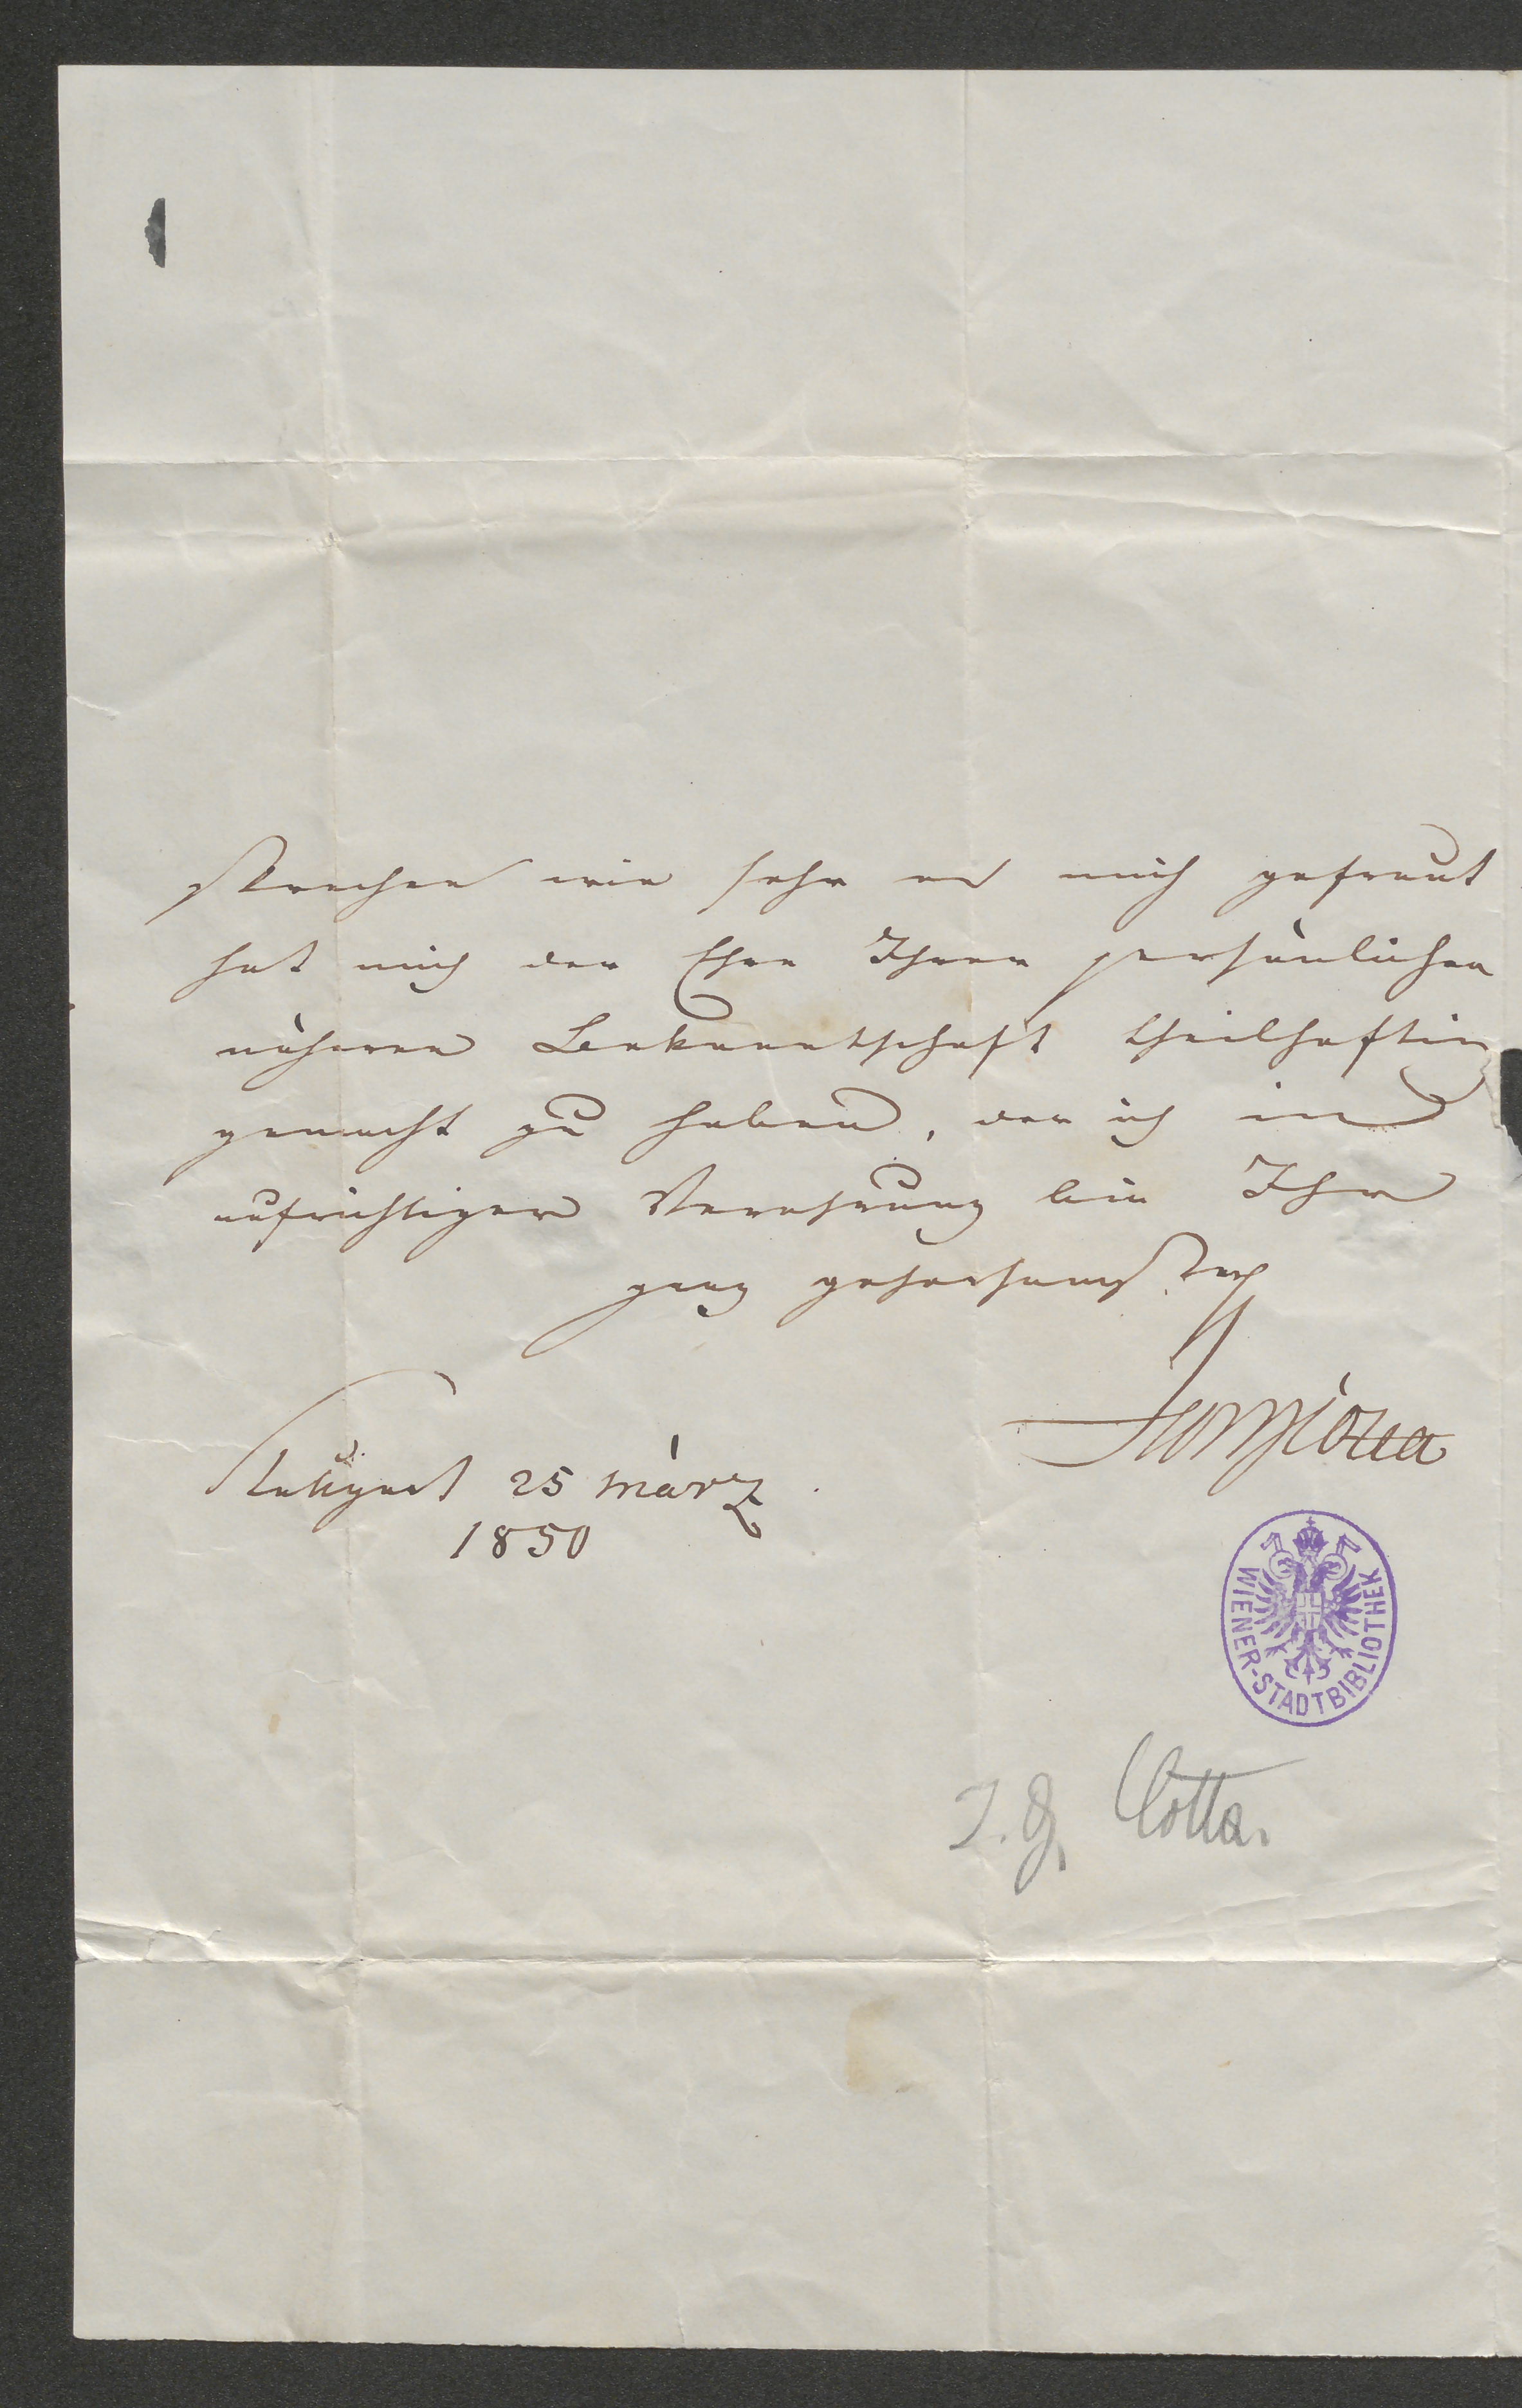 sprechen wie sehr es mich gefreut
hat mich der Ehre Ihrer persönlichen
näheren Bekanntschaft theilhaftig
gemacht zu haben, der ich in
aufrichtiger Verehrung bin Ihr
ganz gehorsamster
Stuttgart 25 März
1850
WIENER-STADTBIBLIOTHEK
J. G. Cotta.